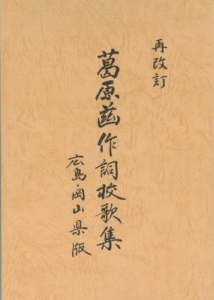 再改訂
葛原𦱳作詞校歌集
広島・岡山県版